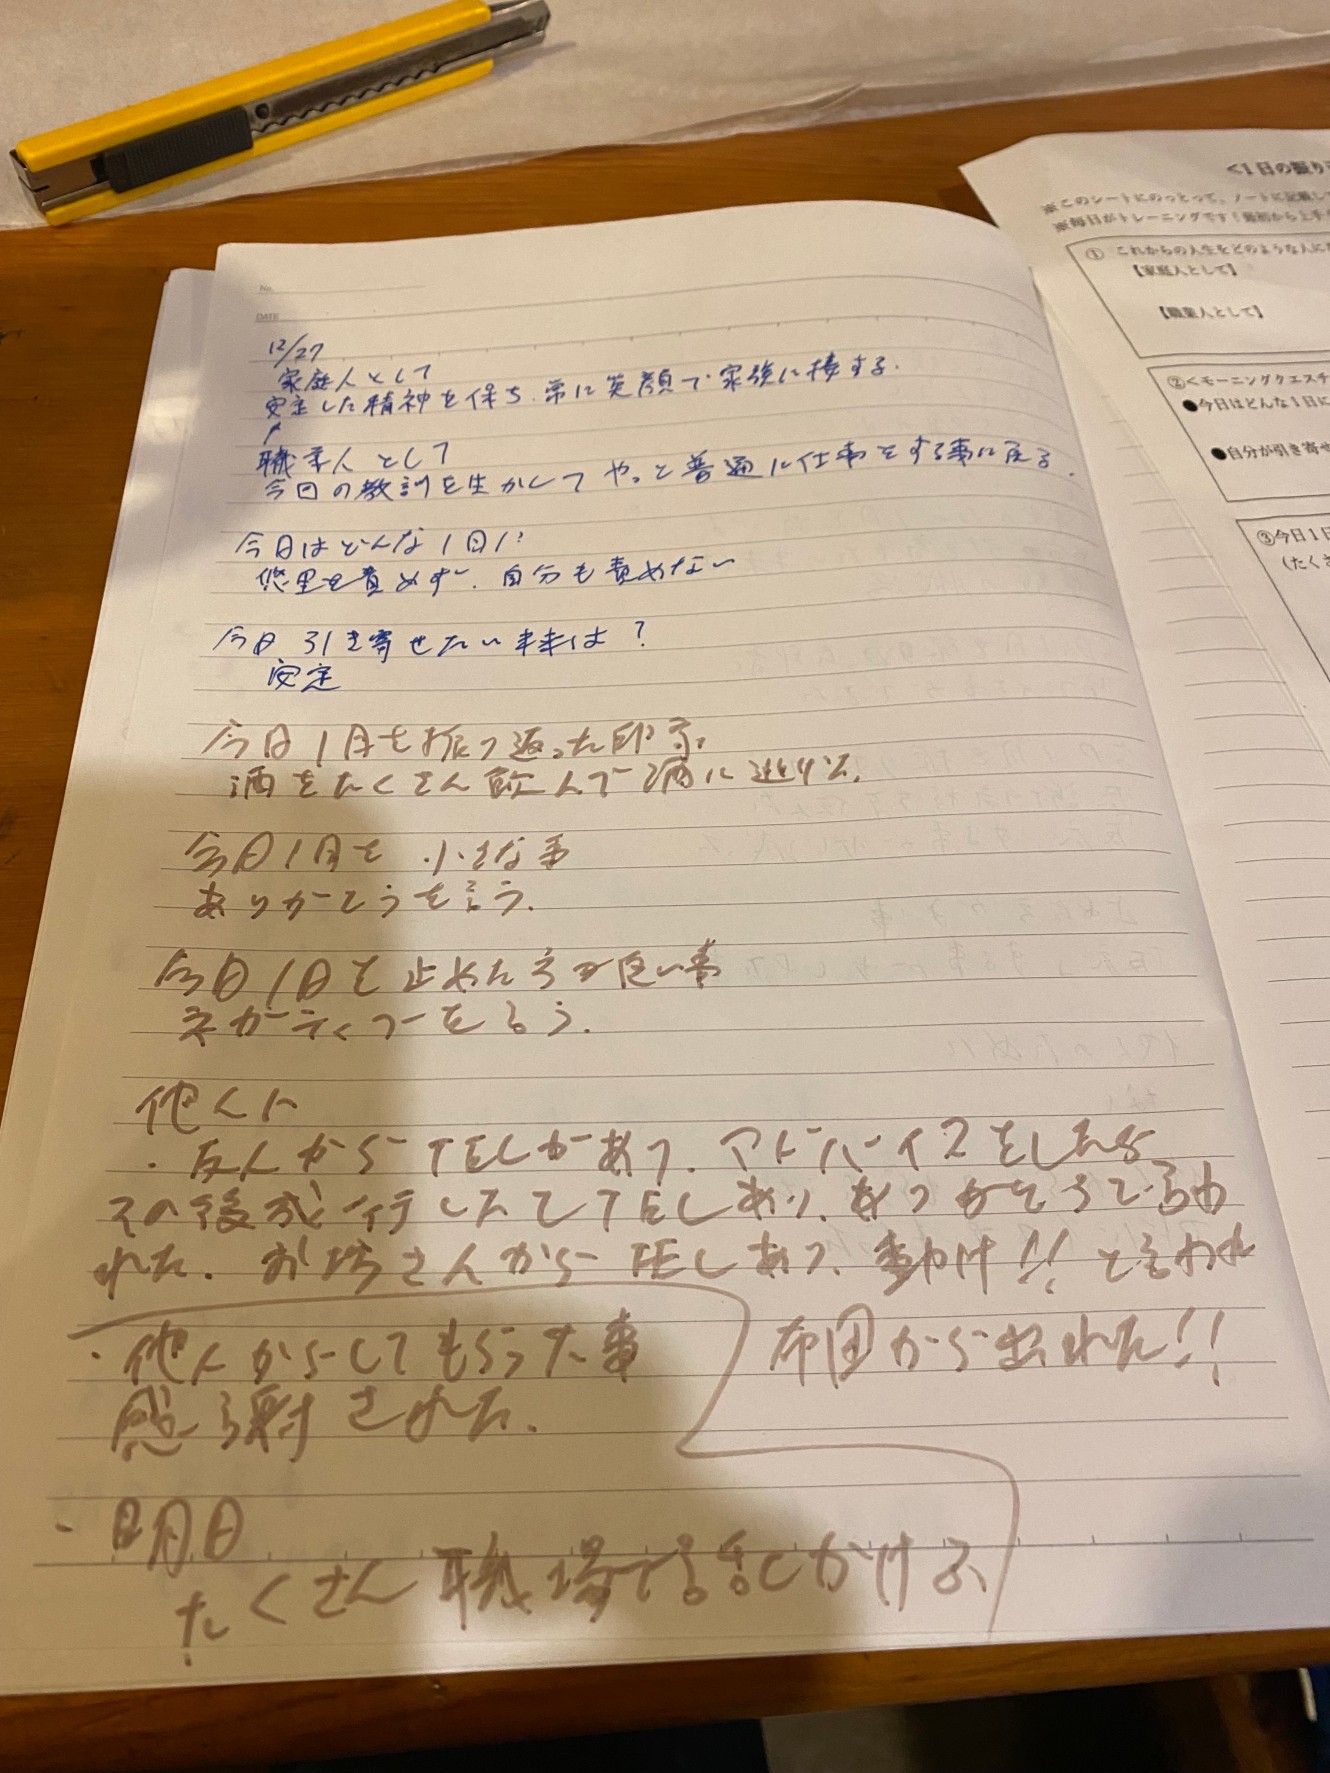 No.
DATE
12/27
家庭人として
安定した精神を保ち、常に笑顔で家族に接する。
職業人として
今回の教訓を生かしてやっと普通に仕事をする事に戻る。
今日はどんな1日に
悠里を責めず、自分も責めない
今日引き寄せたい未来は?
安定
今日1日を振り返った印象
酒をたくさん飲んで酒に逃げた。
今日1日を 小さな事
ありがとうを言う。
今日1日を止めた方が良い事
ネガティブを言う。
他人に
・友人からTELがあり、アドバイスをしたら
その後成行したとTELあり、ありがとうと言わ
れた。お坊さんからTELあり、動け!!と言われ
布団から出れた!!
・他人からしてもらった事
感謝された。
・明日
たくさん職場で話しかける
<1日の振り
※このシートにのっとって、ノートに記載して
※毎日がトレーニングです!最初から上手
① これからの人生をどのような人に
【家庭人として】
【職業人として】
②<モーニングクエスチ
●今日はどんな1日に
●自分が引き寄せ
③今日1日
(たくさ